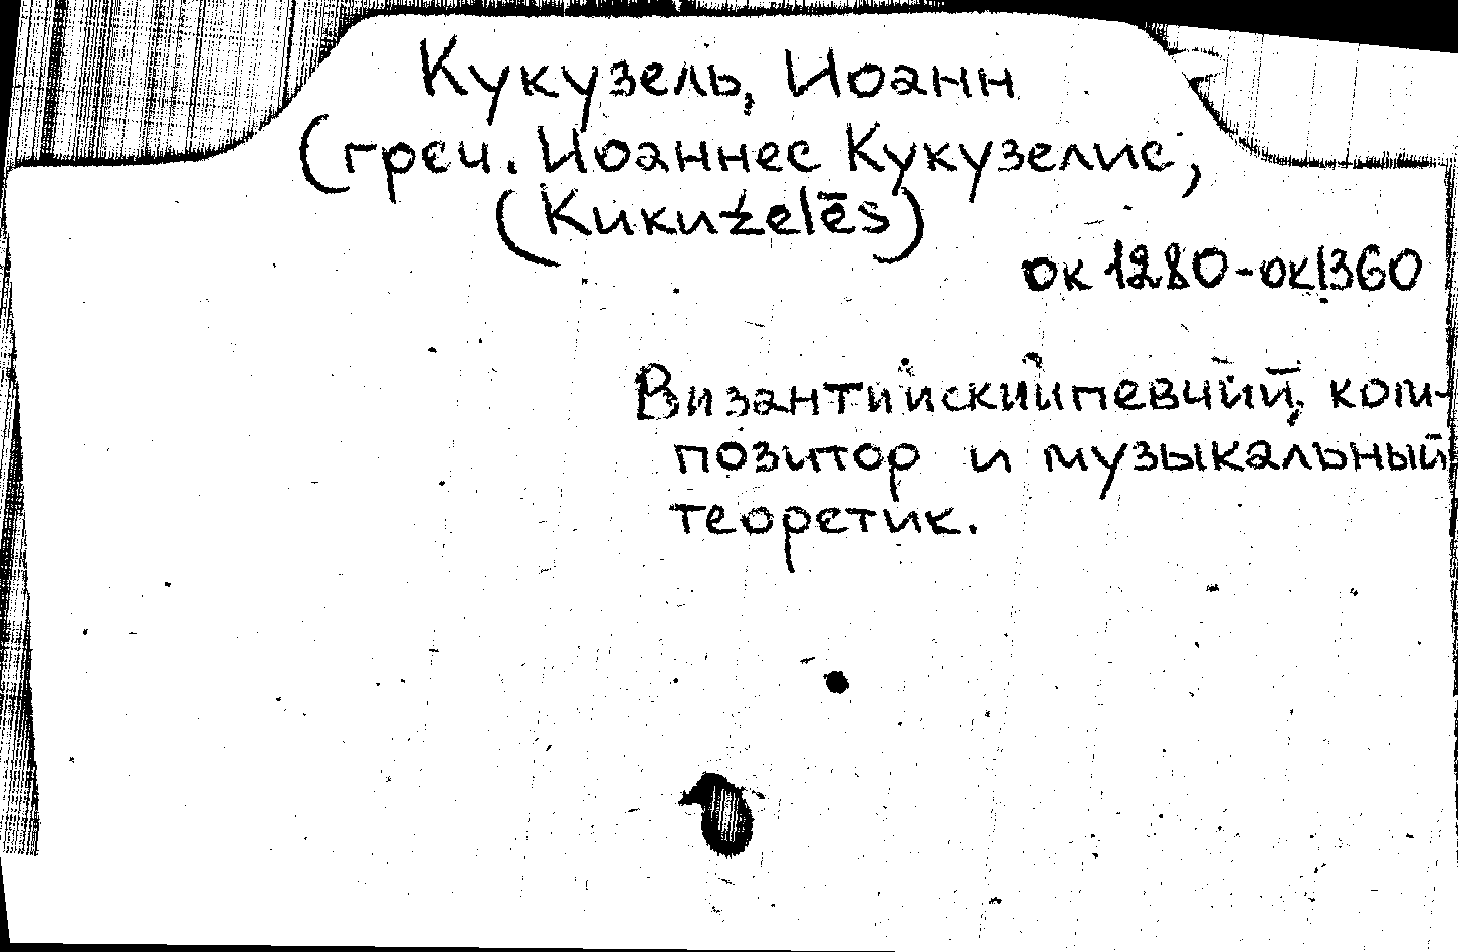 Кукузель, Иоанн
(греч. Иоаннес Кукузелис,
(Kukuzelēs)
ок 1280-ок1360
Византийский певчий, ком-
позитор и музыкальный
теоретик.